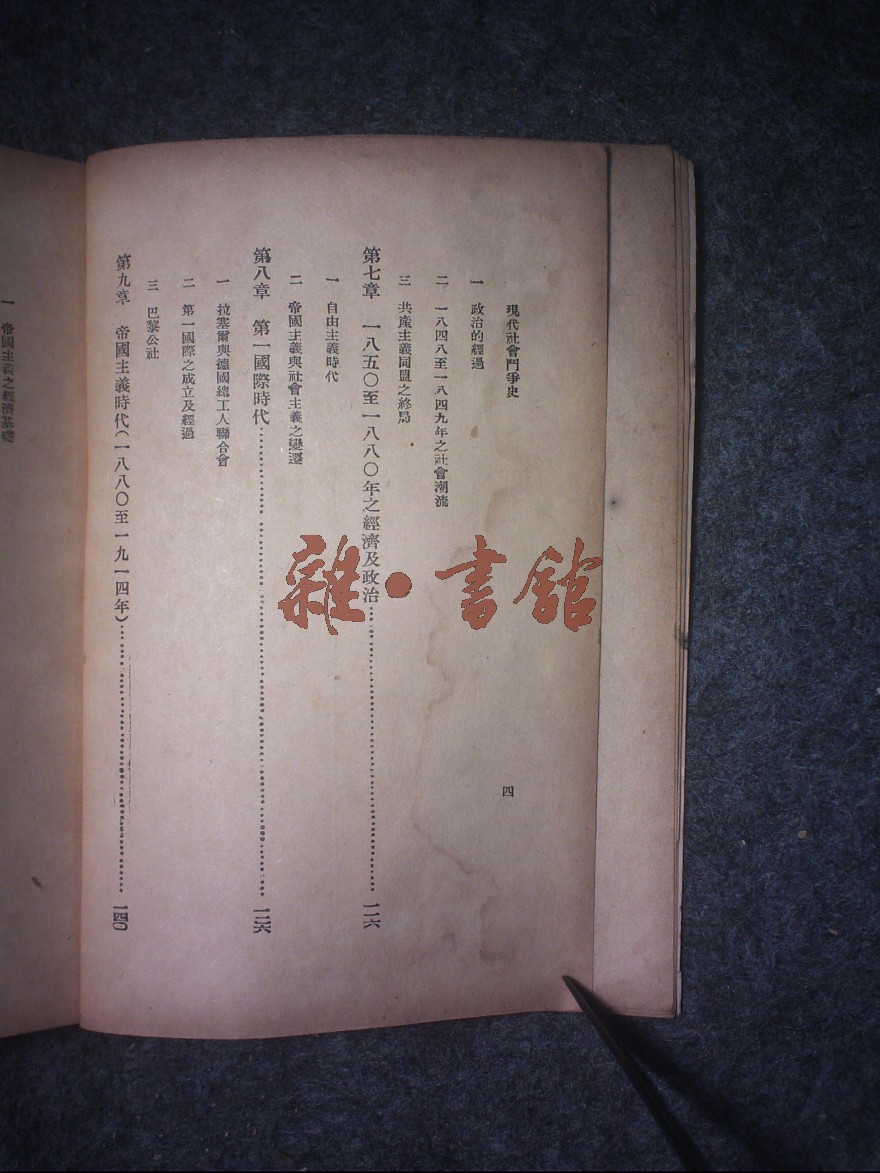 現代社會鬥爭史
四
一 政治的經過
二 一八四八至一八四九年之社會潮流
三 共產主義同盟之終局
第七章 一八五〇至一八八〇年之經濟及政治…………一一六
一 自由主義時代
二 帝國主義與社會主義之變遷
第八章 第一國際時代…………一二六
一 拉塞爾與德國總工人聯合會
二 第一國際之成立及經過
三 巴黎公社
第九章 帝國主義時代(一八八〇至一九一四年)…………一四〇
一 帝國主義之經濟基礎
雜·書館